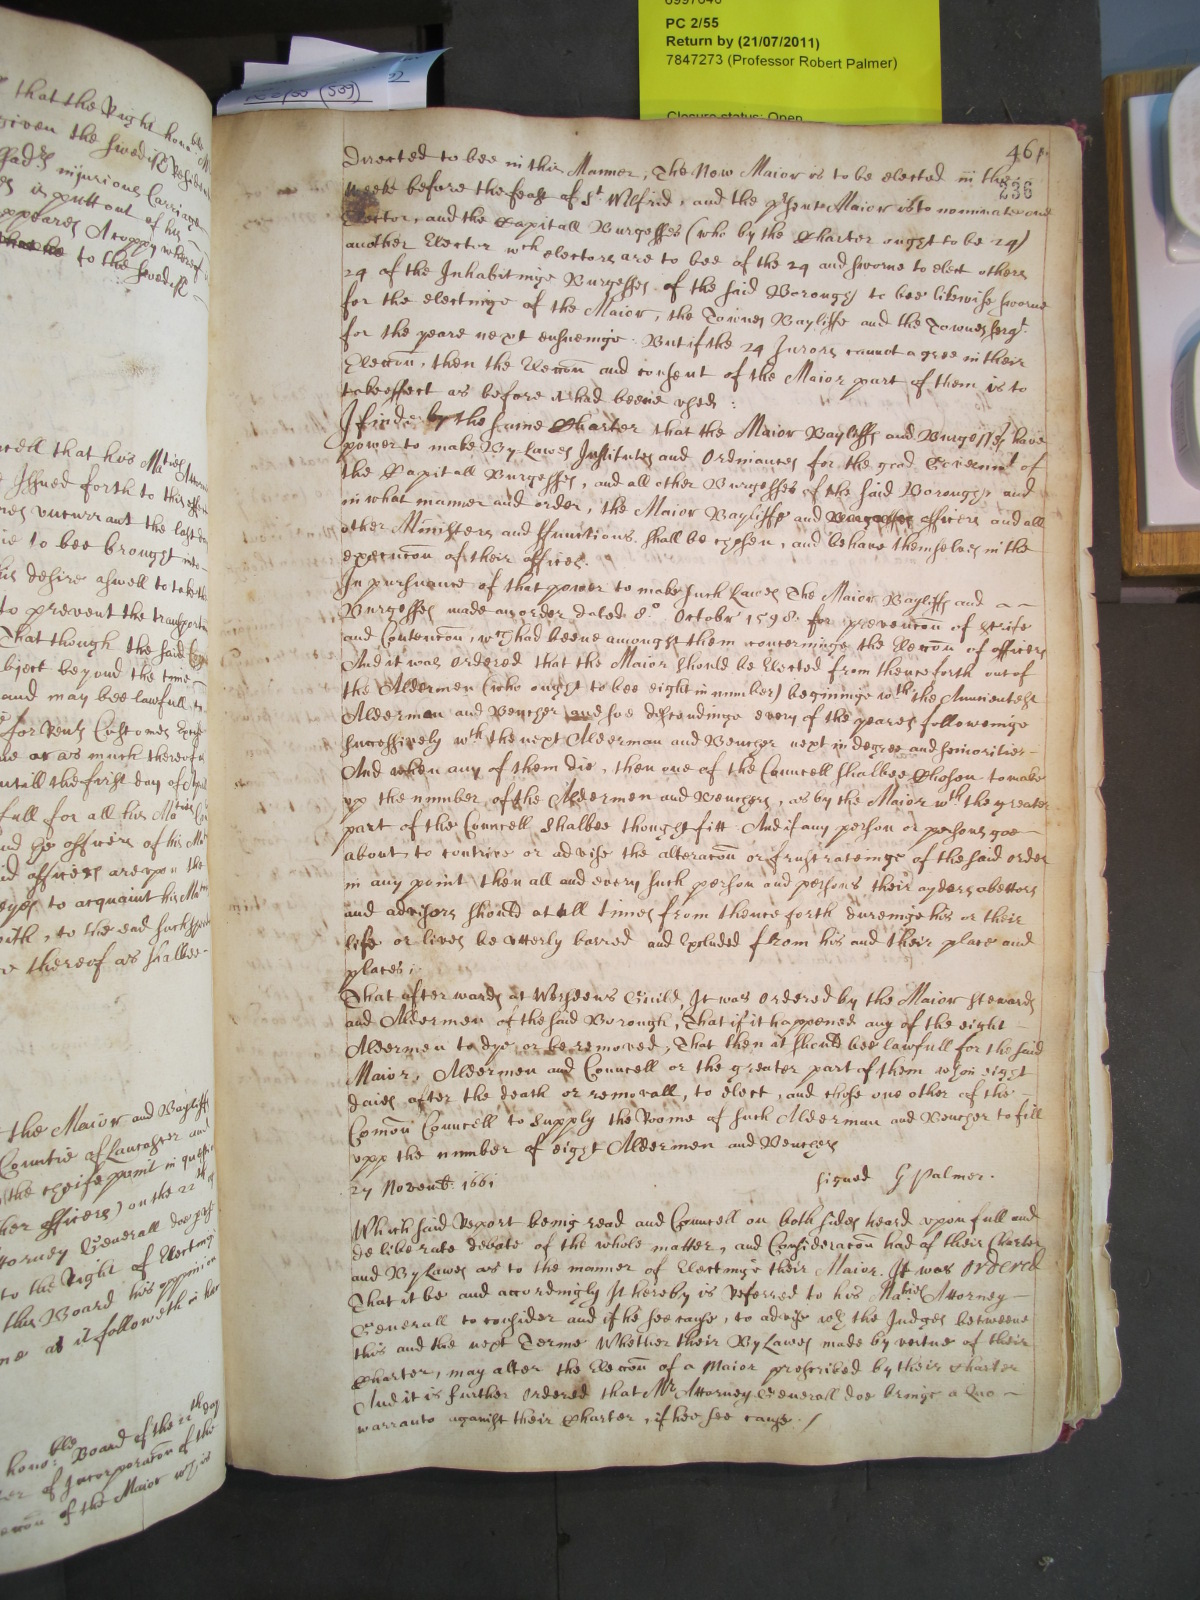 PC 2/55
Return by (21/07/2011)
7847273 (Professor Robert Palmer)
Closure status: Open
that the Right hono:ble
given the Swedish Resident
injurious Carriage
is putt out of his
appeares A coppy whereof
to the Swedish
that his Ma:ties
Issued forth to this effect
to bee brought into
his desire aswell to take
to prevent the transport
That though the said
bject beyond the time
and may bee lawfull to
for Rents Customes
as much thereof
untill the first day of
full for all his Ma:ties
officers of his Ma
officers are upon the
to acquaint his Ma:tie
to the end such
thereof as shalbee
the Maior and Bayliffs
Countie of Lancaster and
the cheife point in question
her officers) on the 22th of
ttorney Generall doe
to the Right of Electing
this Board his oppinion
as it followeth in
hono:ble Board of the 22th day
er of Incorporacon of the
of the Maior wch is
46
236
directed to bee in this Manner, The New Maior is to be elected in the
weeke before the feast of St Wilfrid, and the psent Maior is to nominate one
Elector, and the Capitall Burgesses (who by the Charter ought to be 24)
another Elector wch electors are to bee of the 24 and sworne to elect others
24 of the Inhabitinge Burgesses of the said Borough to bee likewise sworne
for the electinge of the Maior, the Townes Bayliffe and the Townes Sergt
for the yeare next ensueinge. But if the 24 Jurors cannot agree in their
Eleccon, then the Eleccon and consent of the Maior part of them is to
take effect as before it had beene used:
I finde by the same Charter that the Maior Bayliffs and Burgesses have
power to make By Lawes Institutes and Ordinances for the good Governmt of
the Capitall Burgesses, and all other Burgesses of the said Borough, and
in what manner and order, the Maior Bayliffs and officers and all
other Ministers and ffunctions shall be chosen, and behave themselves in the
execucon of their offices.
In pursuance of that power to make such Lawes The Maior Bayliffs and
Burgesses made an order dated 8º Octobr 1598 for prevencon of strife
and Contencon, wch had beene amongst them concerninge the Eleccon of officers
And it was ordered that the Maior should be Elected from thenceforth out of
the Aldermen (who ought to bee eight in number) beginninge wth the Auncientest
Alderman and Bencher and soe discendinge every of the yeares followeinge
successively wth the next Alderman and Bencher next in degree and senioritie
And when any of them die, then one of the Councell shalbee Chosen to make
up the number of the Aldermen and Benchers, as by the Maior wth the greater
part of the Councell shalbee thought fitt And if any person or persons goe
about to contrive or advise the alteracon or frustrateinge of the said order
in any point then all and every such person and persons their ayders abettors
and advisors should at all times from thenceforth dureinge his or their
life or lives be utterly barred and Excluded from his and their place and
places;
That afterwards at Guild, It was ordered by the Maior Stewards
and Aldermen of the said Borough, That if it happened any of the eight
Aldermen to dye or be removed, That then it should bee lawfull for the said
Maior, Aldermen and Councell or the greater part of them wthin eight
daies after the death or removall, to elect, and chose one other of the
Comon Councell to supply the Roome of such Alderman and Bencher to fill
upp the number of eight Aldermen and Benchers
27 Novemb: 1661 signed G Palmer.
Which said Report being read and Councell on both sides heard upon full and
deliberate debate of the whole matter, and Consideracon had of their Charter
and By Lawes as to the manner of Electinge their Maior. It was Ordered
That it be and accordingly It hereby is Referred to his Ma:ties Attorney
Generall to consider and if he see cause, to advise wth the Judges betweene
this and the next Terme Whether their By Lawes made by vertue of their
Charter, may alter the Eleccon of a Maior prescribed by their Charter
And it is further Ordered that Mr Attorney Generall doe bringe a Quo
warranto against their Charter, if hee see cause. /